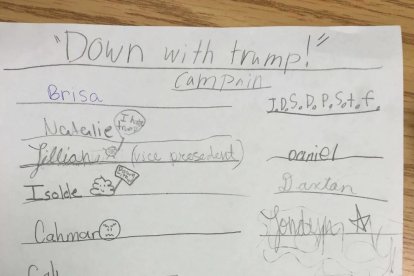 "Down with trump!"
campain
Brisa
Natalie
I hate trump
Jillian (vice presedent)
Isolde
Cahmar
I.D.S.D.P.S.t.f.
Daniel
Daxtan